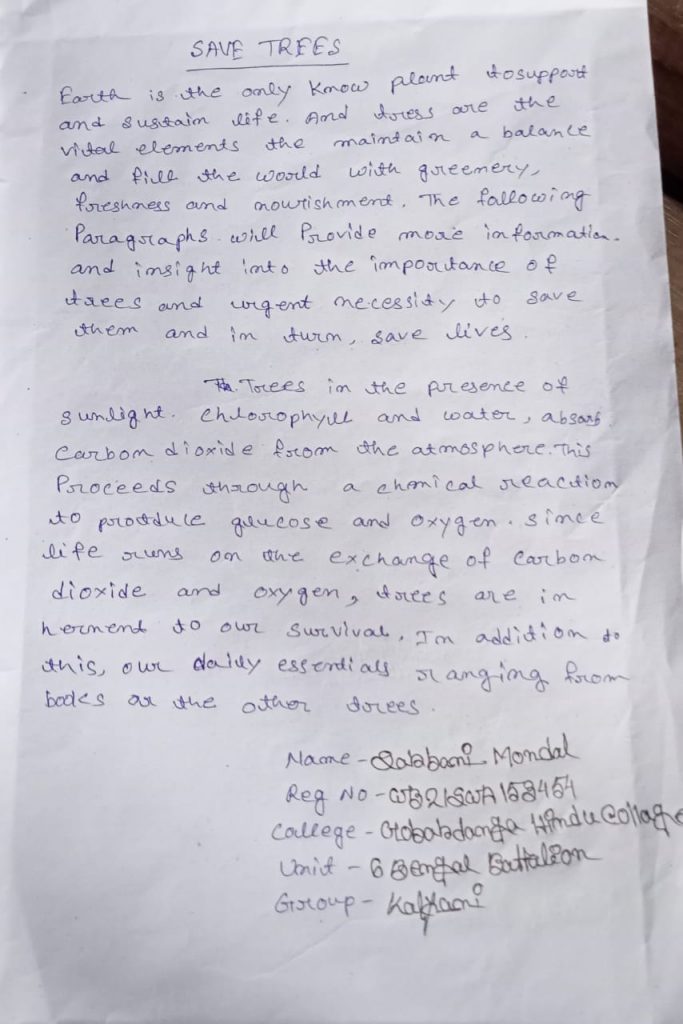 SAVE TREES
Earth is the only know plant to support
and sustain life. And tress are the
vital elements the maintain a balance
and fill the world with greenery,
freshness and nourishment. The following
Paragraphs will Provide more information.
and insight into the importance of
trees and urgent necessity to save
them and in turn, save lives.
Trees in the presence of
sunlight. Chlorophyll and water, absorb
Carbon dioxide from the atmosphere. This
Proceeds through a chmical reaction
to prodduce glucose and oxygen. Since
life runs on the exchange of Carbon
dioxide and oxygen, trees are in
hernend to our survival. In addition to
this, our daily essentials ranging from
the other trees.
Name - Mondal
Reg No - WB21SWA153454
College - Hindu Collage
Unit - 6 Bengal Battalion
Group - Kalyani